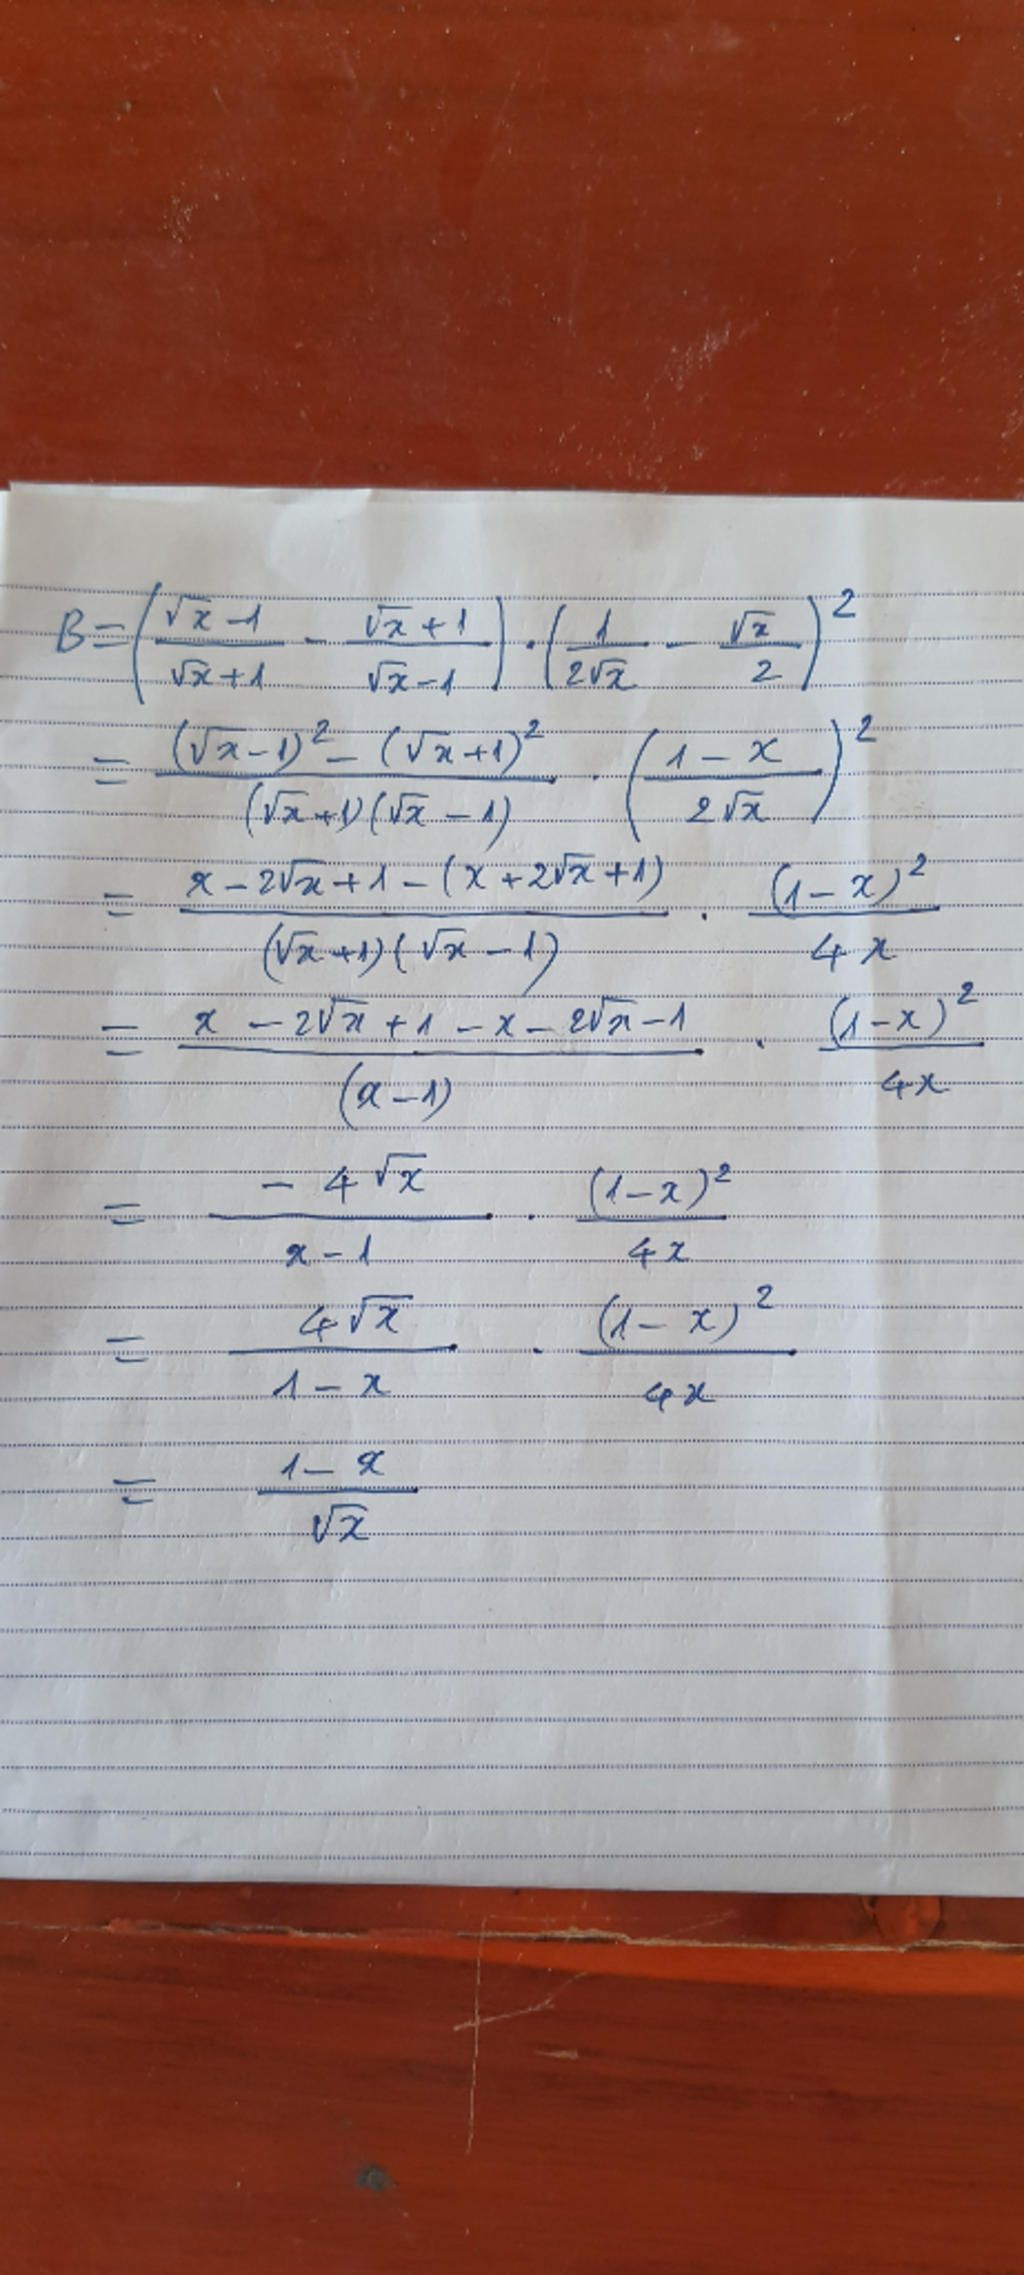 B = ( (√x - 1)/(√x + 1) - (√x + 1)/(√x - 1) ) . ( 1/(2√x) - √x/2 )²
= ((√x - 1)² - (√x + 1)²)/((√x + 1)(√x - 1)) . ( (1 - x)/(2√x) )²
= (x - 2√x + 1 - (x + 2√x + 1))/((√x + 1)(√x - 1)) . (1 - x)²/(4x)
= (x - 2√x + 1 - x - 2√x - 1)/(x - 1) . (1 - x)²/(4x)
= (-4√x)/(x - 1) . (1 - x)²/(4x)
= (4√x)/(1 - x) . (1 - x)²/(4x)
= (1 - x)/√x